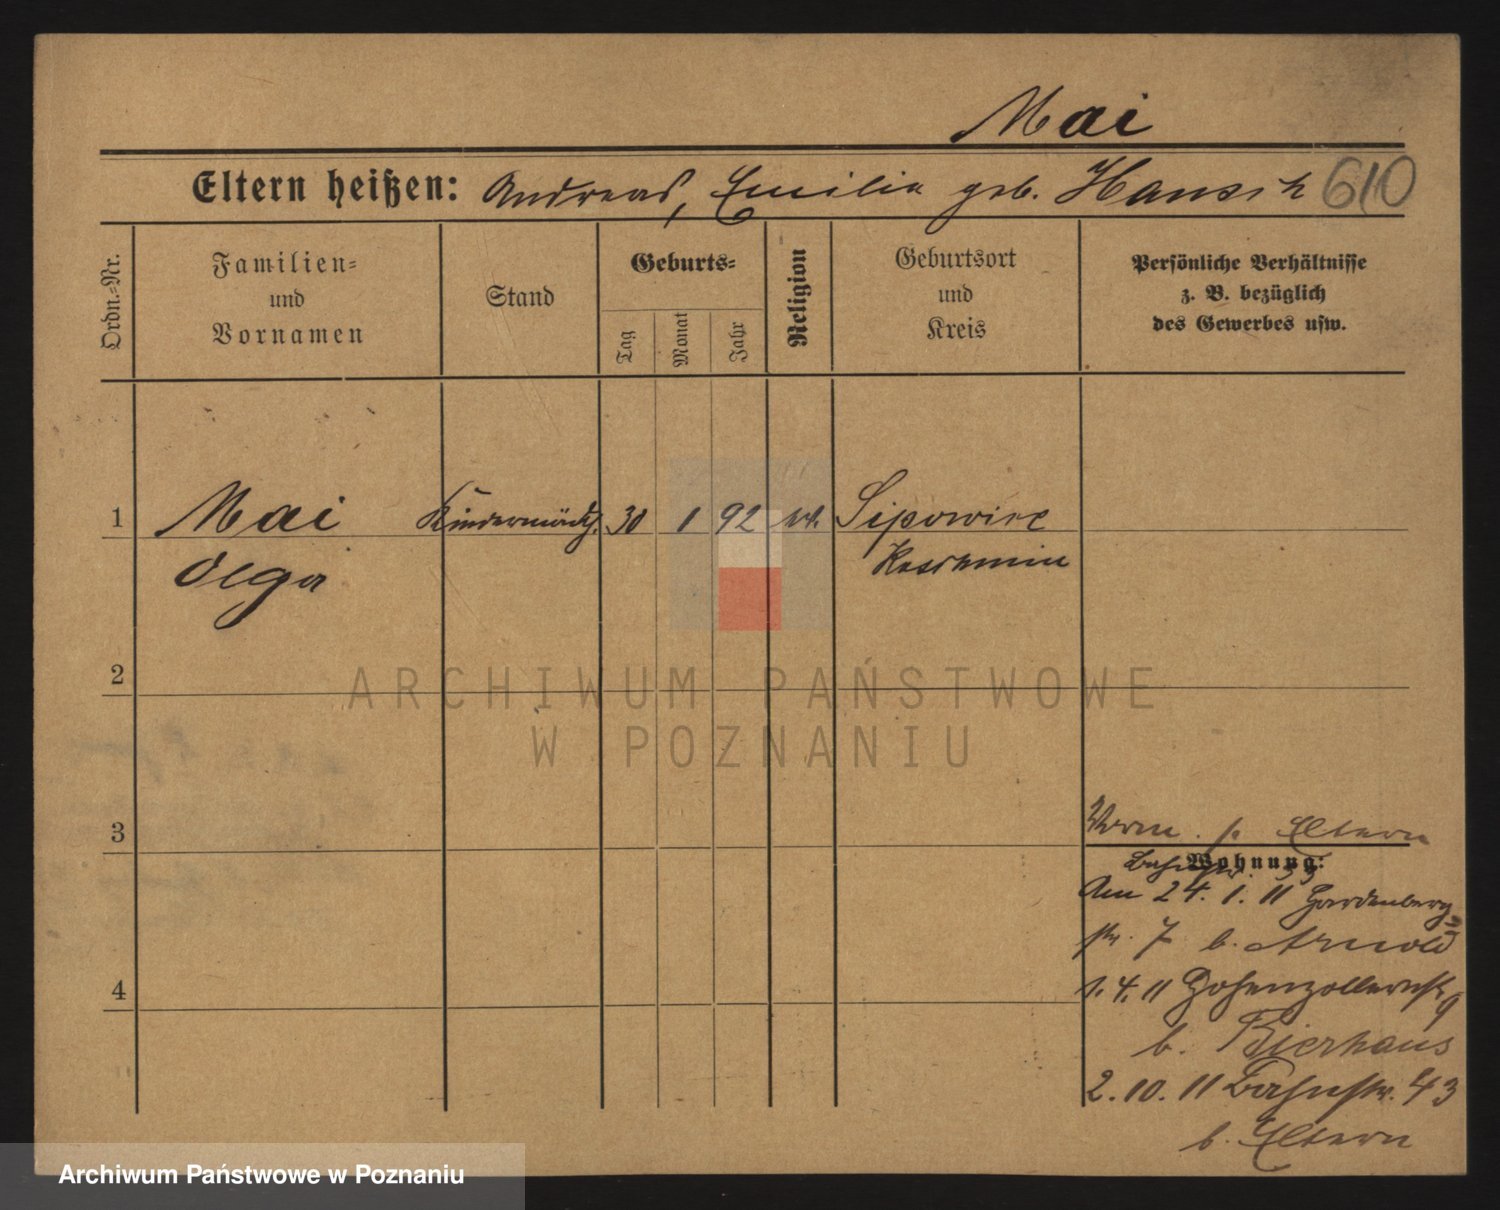 Mai
Eltern heißen: Andreas, Emilia geb. Hansch 610
Ordn.-Nr.
Familien-
und
Vornamen
Stand
Geburts-
Tag
Monat
Jahr
Religion
Geburtsort
und
Kreis
Persönliche Verhältnisse
z. B. bezüglich
des Gewerbes usw.
1 Mai Kindermädch. 30 1 92
Olga Koschmin
2
ARCHIWUM PAŃSTWOWE
W POZNANIU
3
Eltern
Wohnung:
Am 24. 1. 11 Hardenberg
str. 7 b. Arnold
4
1. 4. 11 Hohenzollernstr 9
b. Bierhaus
2. 10. 11 Bahnstr. 43
b. Eltern
Archiwum Państwowe w Poznaniu